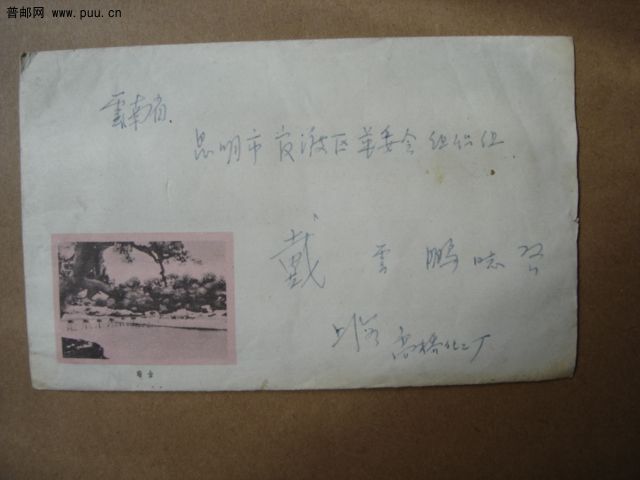 普邮网 www.puu.cn
雲南省
昆明市官渡区革委会组织组
戴雲鹏同志 收
上海高桥化工厂